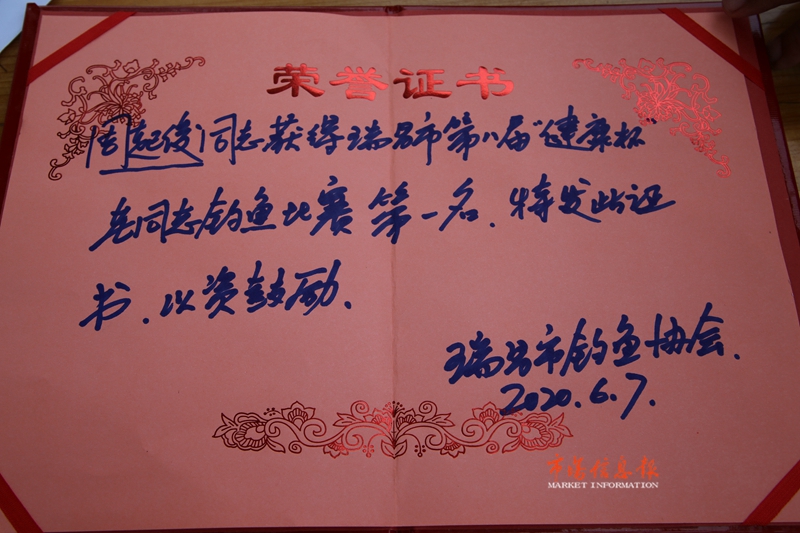 荣誉证书
周起俊同志获得瑞昌市第八届"健康杯"
老同志钓鱼比赛第一名、特发此证
书、以资鼓励、
瑞昌市钓鱼协会、
2020.6.7.
市场信息报
MARKET INFORMATION